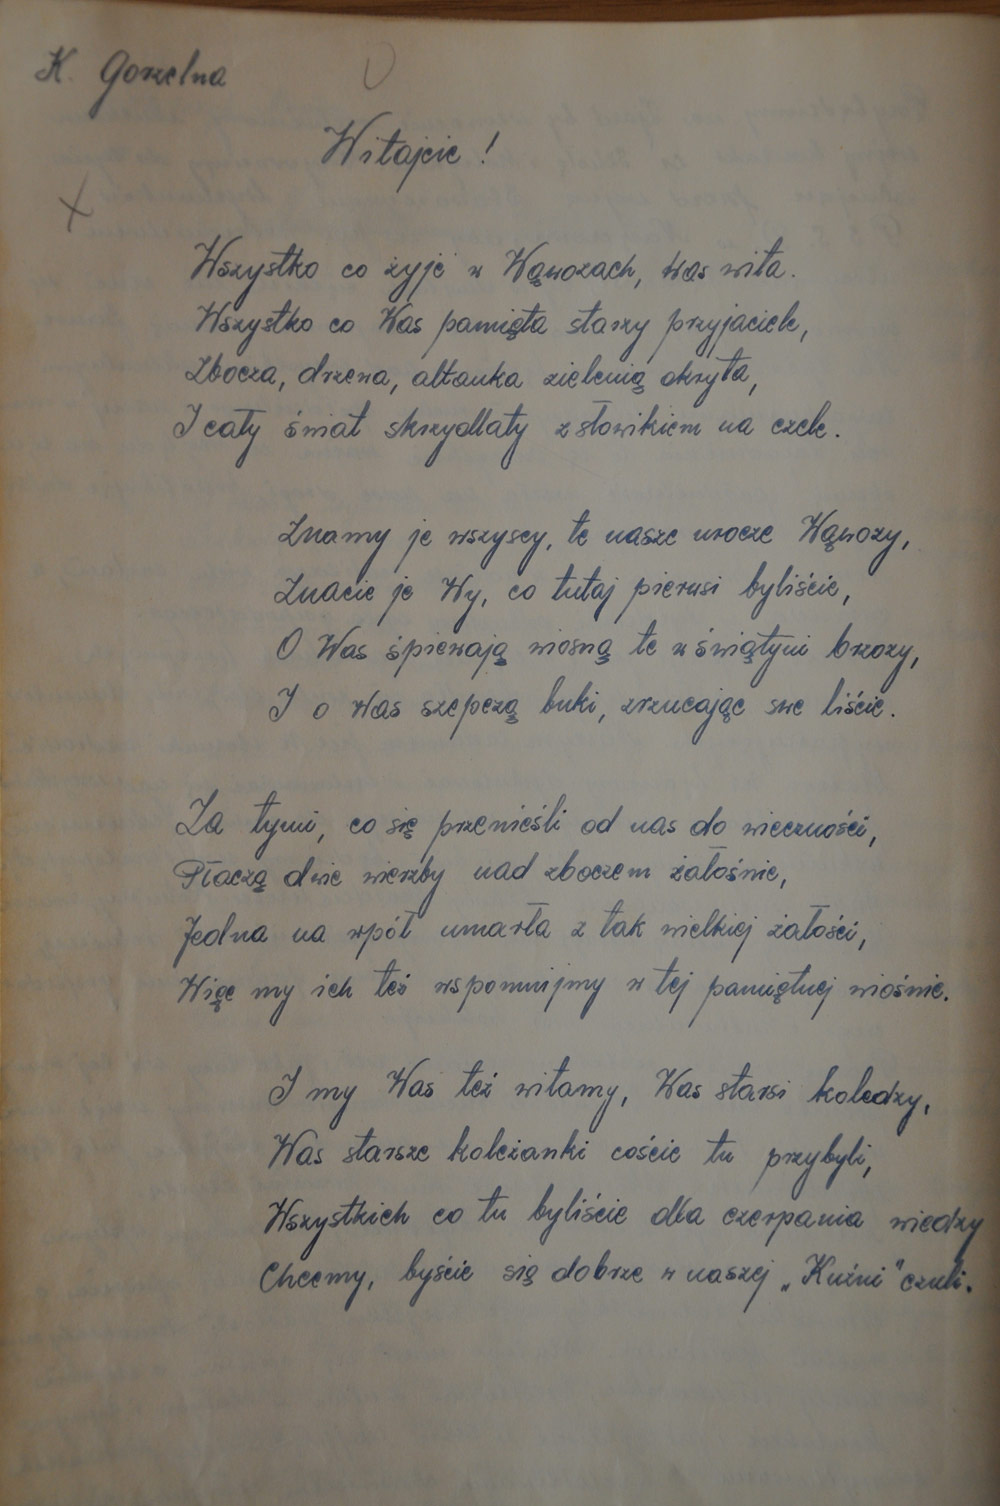 K. Gorzelna
Witajcie!
Wszystko co żyje w Wąwozach, Was wita.
Wszystko co Was pamięta starzy przyjaciele,
Zbocza, drzewa, altanka zielenią okryta,
I cały świat skrzydlaty z słowikiem na czele.
Znamy je wszyscy, te nasze urocze Wąwozy,
Znacie je Wy, co tutaj pierwsi byliście,
O Was śpiewają wiosną te w świątyni brzozy,
I o Was szepczą buki, zrzucając swe liście.
Za tymi, co się przenieśli od nas do wieczności,
Płaczą dwie wierzby nad zboczem żałośnie,
Jedna na wpół umarła z tak wielkiej żałości,
Więc my ich też wspomnijmy w tej pamiętnej wiośnie.
I my Was też witamy, Was starsi koledzy,
Was starsze koleżanki coście tu przybyli,
Wszystkich co tu byliście dla czerpania wiedzy
Chcemy, byście się dobrze w naszej „Kuźni" czuli.